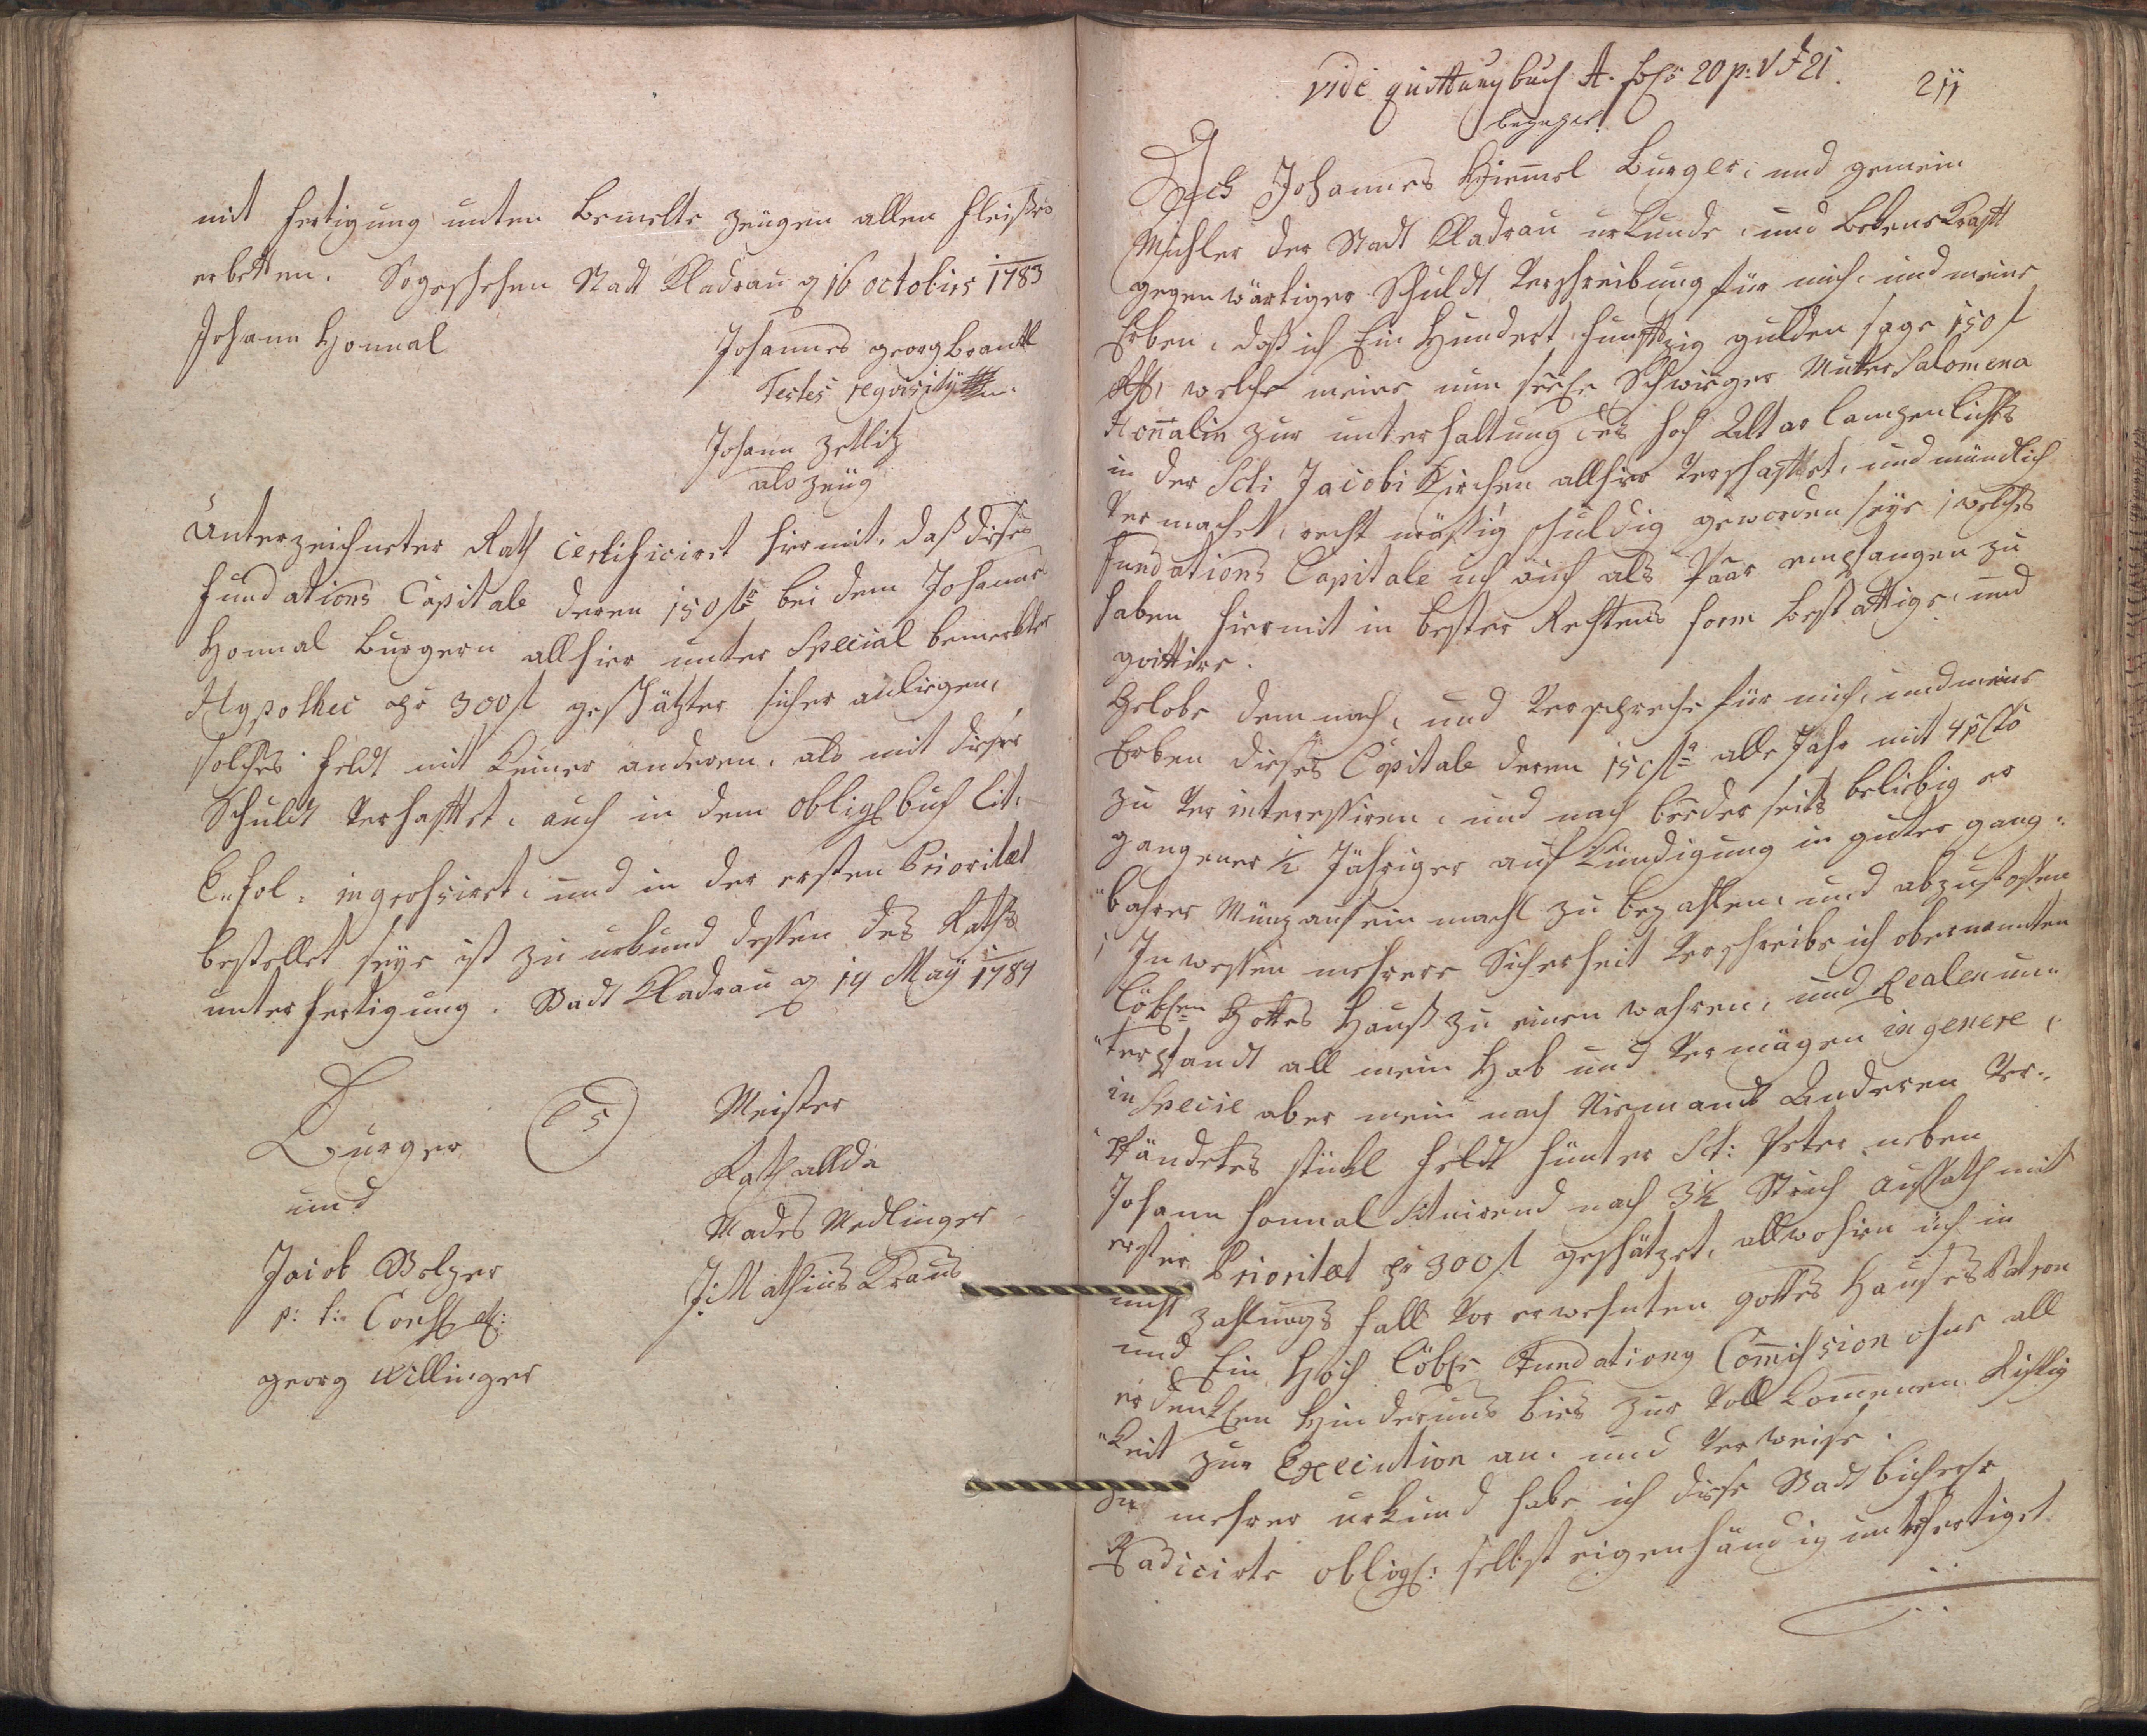 mit fertigung unten bemelte zeugen allen fleißes
erbetten. So geschehen Stadt Kladrau d 16 octobirs 1783
Johann Honnal
Johannes georg brantl
Testes requisity
Johann Zetlitz
als zeug
Unterzeichneter Rath Certificiret hiermit, daß dieses
fundations Capitale deren 150 f bei dem Johann
Honnal burgern allhier unter Special bemerkter
Hypothec pr 300 f geschätzter sicher anliegen,
solches feldt mit keiner anderen, als mit dieser
Schuldt verhafftet, auch in dem obligs buch Lit:
C. fol. ingrohsiret, und in der ersten Prioritæt
bestellet seye ist zu urkund dessen des Raths
unterfertigung. Stadt Kladrau d 14 May 1784
Burger
und
LS
Meister
Rath allda
Jacob Bolzer
p: t: Cons
georg Willinger
Mades Medlinger
J: Mathias Kraus
vide quittung buch A. folio 20 p: V F 21.
211
bezahlet
Ich Johannes Himmel Burger, und gemein
Michler der Stadt Kladrau urkunde, und bekenne Krafft
gegenwärtiger Schuldt Verschreibung für mich, und meine
Erben, daß ich Ein Hundert funffzig gulden sage 150 f
Rh, welche meine nun seelge Schwieger Mutter Salomena
Honnalin zur unterhaltung des hoch Altar lampen lichts
in der Scti Jacobi Kirchen allhier verschaffet, und mündlich
vermachet, recht mäßig schuldig geworden seye, welches
fundations Capitale ich auch als Paar empfangen zu
haben hiermit in bester Rechtens form bestättige, und
quittire.
Gelobe demnach, und verspreche für mich, und meine
Erben dieses Capitale deren 150 f alle Jahr mit 4 p Cto
zu ver interessiren, und nach beeder seits beliebig er
gangener ½ Jähriger aufkündigung in guter gang¨
¨bahrer Münz auf ein mahl zu bezahlen, und abzustossen
In wessen mehrere Sicherheit verschreibe ich obernannten
löblen Gottes Hauß zu einen wahren, und Realen un¨
¨terpfandt all mein Hab und Vermögen in genere,
in Specie aber mein nach Niemand Anderen Ver¨
¨pfändetes stückl feldt hünter Sct: Peter neben
Johann Honnal Situirend nach 3½ Strich Aussath mit
erster Prioritæt pr 300 f geschätzet, allwohin ich in
nicht zahlungs fall vor erwehnten gottes Hauses Patron
und Ein Hoch löble Fundations Commihsion ohne all
erdencklen Hindernus bies zur voll kommenen Richtig
¨keit zur Execution an, und verweise.
Zu mehrer urkund habe ich diese Stadt bücherl
Radicirte oblig: selbst eigenhändig untsfertiget